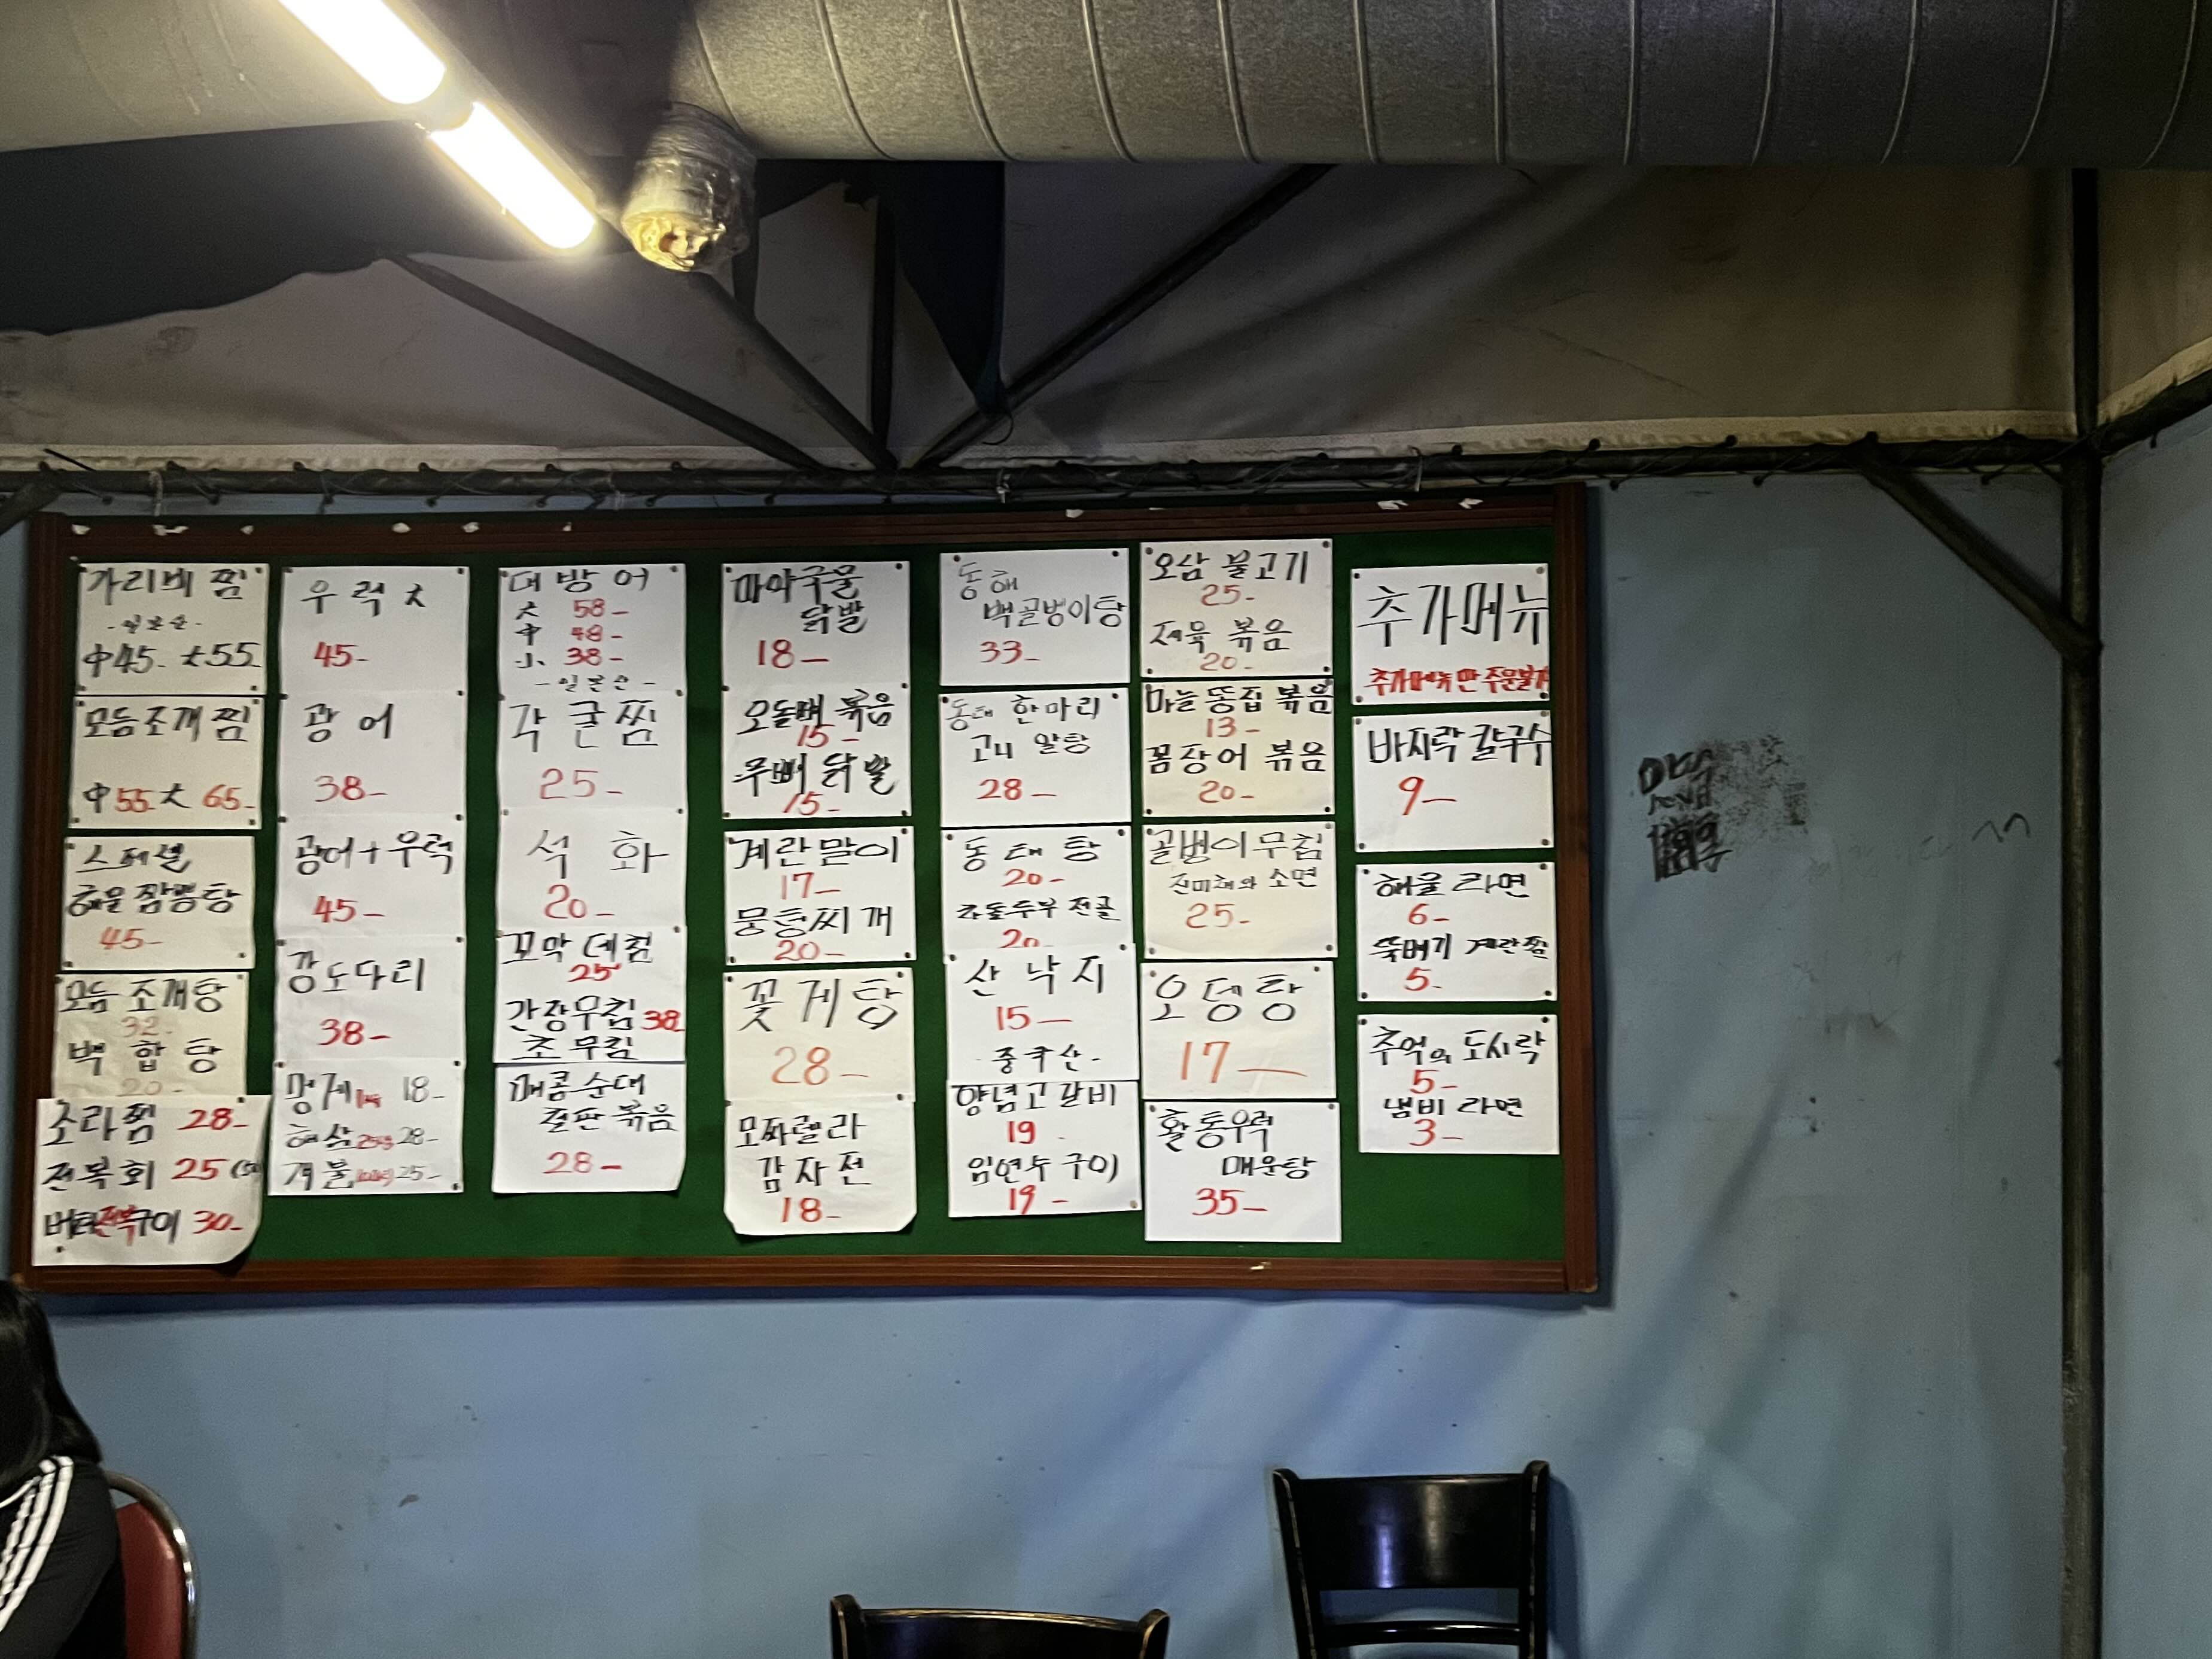 가리비 찜
-일본산-
中45- 大55
모듬조개찜
中55 大 65-
스페셜
해물 짬뽕탕
45-
모듬 조개탕
32-
백합탕
20-
소라찜 28-
전복회 25
버터전복구이 30-
우럭 大
45-
광어
38-
광어+우럭
45-
강도다리
38-
멍게 18-
해삼 28-
개불 25-
대방어
大 58-
中 48-
小 38-
-일본산-
각굴찜
25-
석화
20-
꼬막 데침
25
간장무침 38
초무침
매콤순대
철판볶음
28-
마약국물
닭발
18-
오돌뼈 볶음
15-
무뼈 닭발
15-
계란말이
17-
뭉텅찌개
20-
꽃게탕
28-
모짜렐라
감자전
18-
동해
백골벵이탕
33-
동태 한마리
고니 알탕
28-
동태탕
20-
두부 전골
20-
산낙지
15-
-중국산-
양념고갈비
19-
임연수구이
19-
오삼불고기
25-
제육 볶음
20-
마늘 똥집 볶음
13-
꼼장어 볶음
20-
골벵이무침
진미채와 소면
25-
오뎅탕
17-
활통우럭
매운탕
35-
추가메뉴
추가메뉴만 주문불가
바지락칼국수
9-
해물라면
6-
뚝배기 계란찜
5-
추억의 도시락
5-
냄비라면
3-